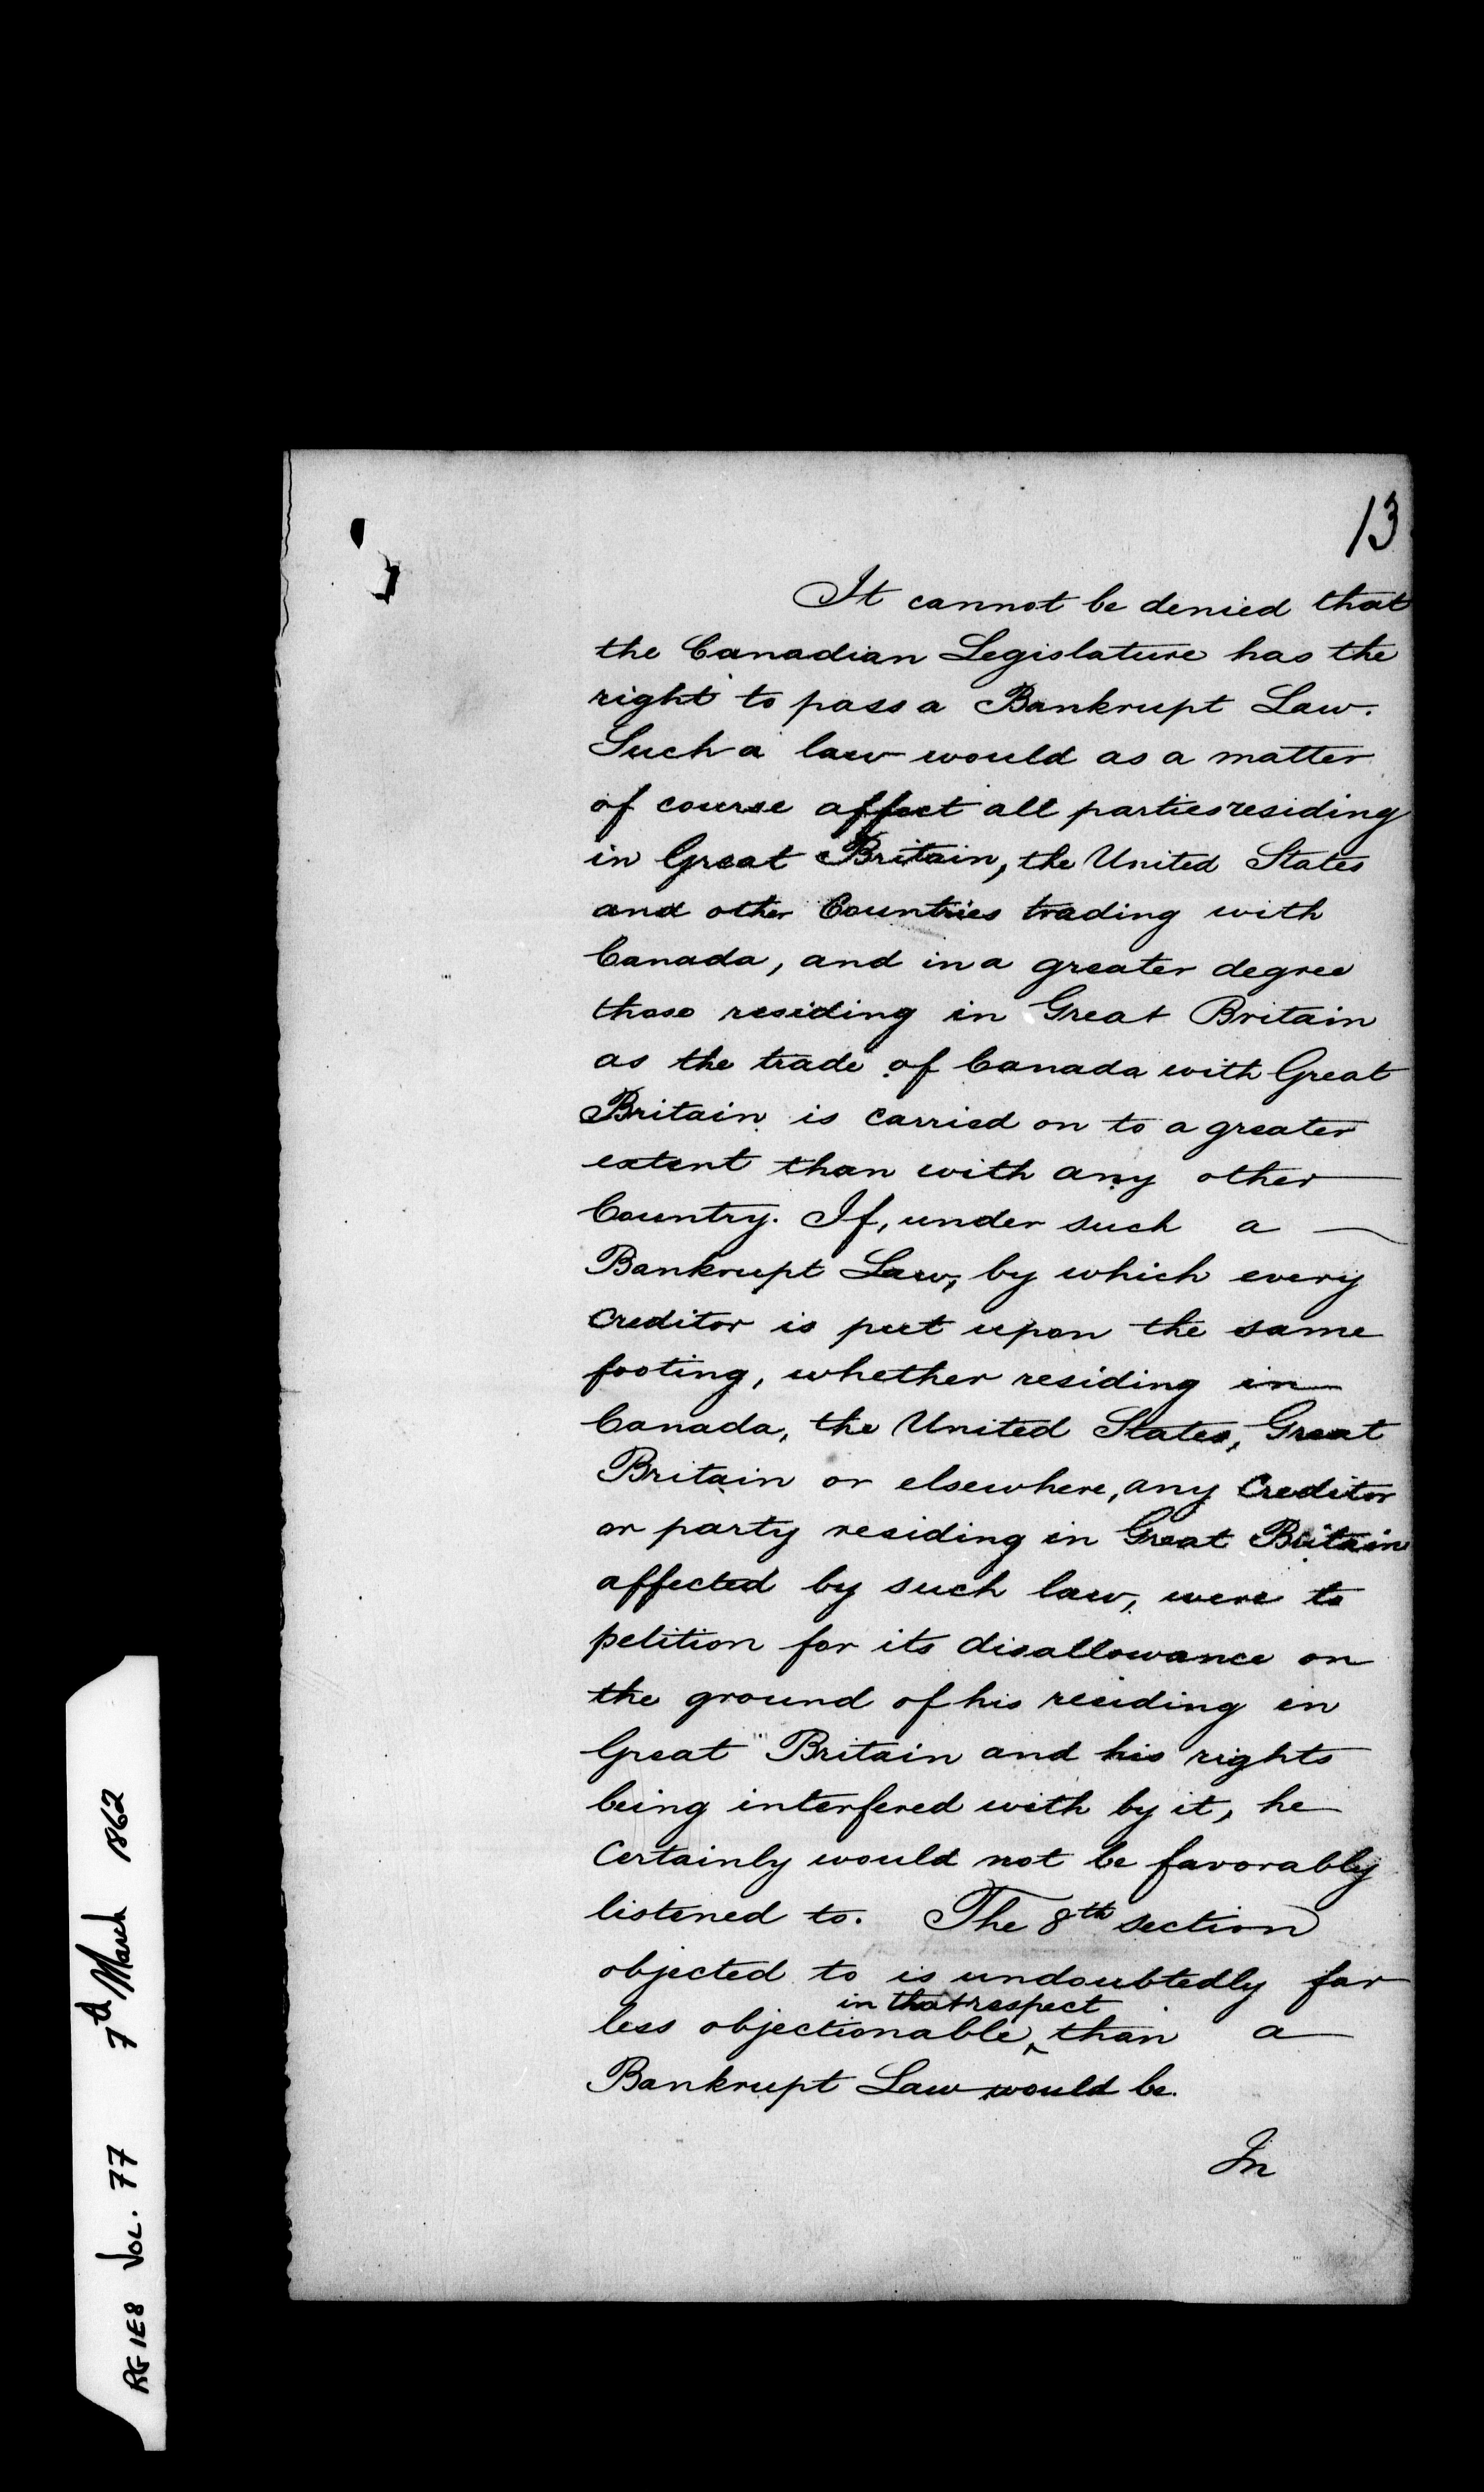 13
It cannot be denied that
the Canadian Legislature has the
right to pass a Bankrupt Law.
Such a law would as a matter
of course affect all parties residing
in Great Britain, the United States
and other Countries trading with
Canada, and in a greater degree
those residing in Great Britain
as the trade of Canada with Great
Britain is carried on to a greater
extent than with any other
Country. If, under such a
Bankrupt Law, by which every
Creditor is put upon the same
footing, whether residing in
Canada, the United States, Great
Britain or elsewhere, any Creditor
or party residing in Great Britain
affected by such law, were to
petition for its disallowance on
the ground of his residing in
Great Britain and his rights
being interfered with by it, he
Certainly would not be favorably
listened to. The 8th section
objected to is undoubtedly far
in that respect
less objectionable ‸ than a
Bankrupt Law would be.
In
RG 1E8 VOL. 77 7th March 1862